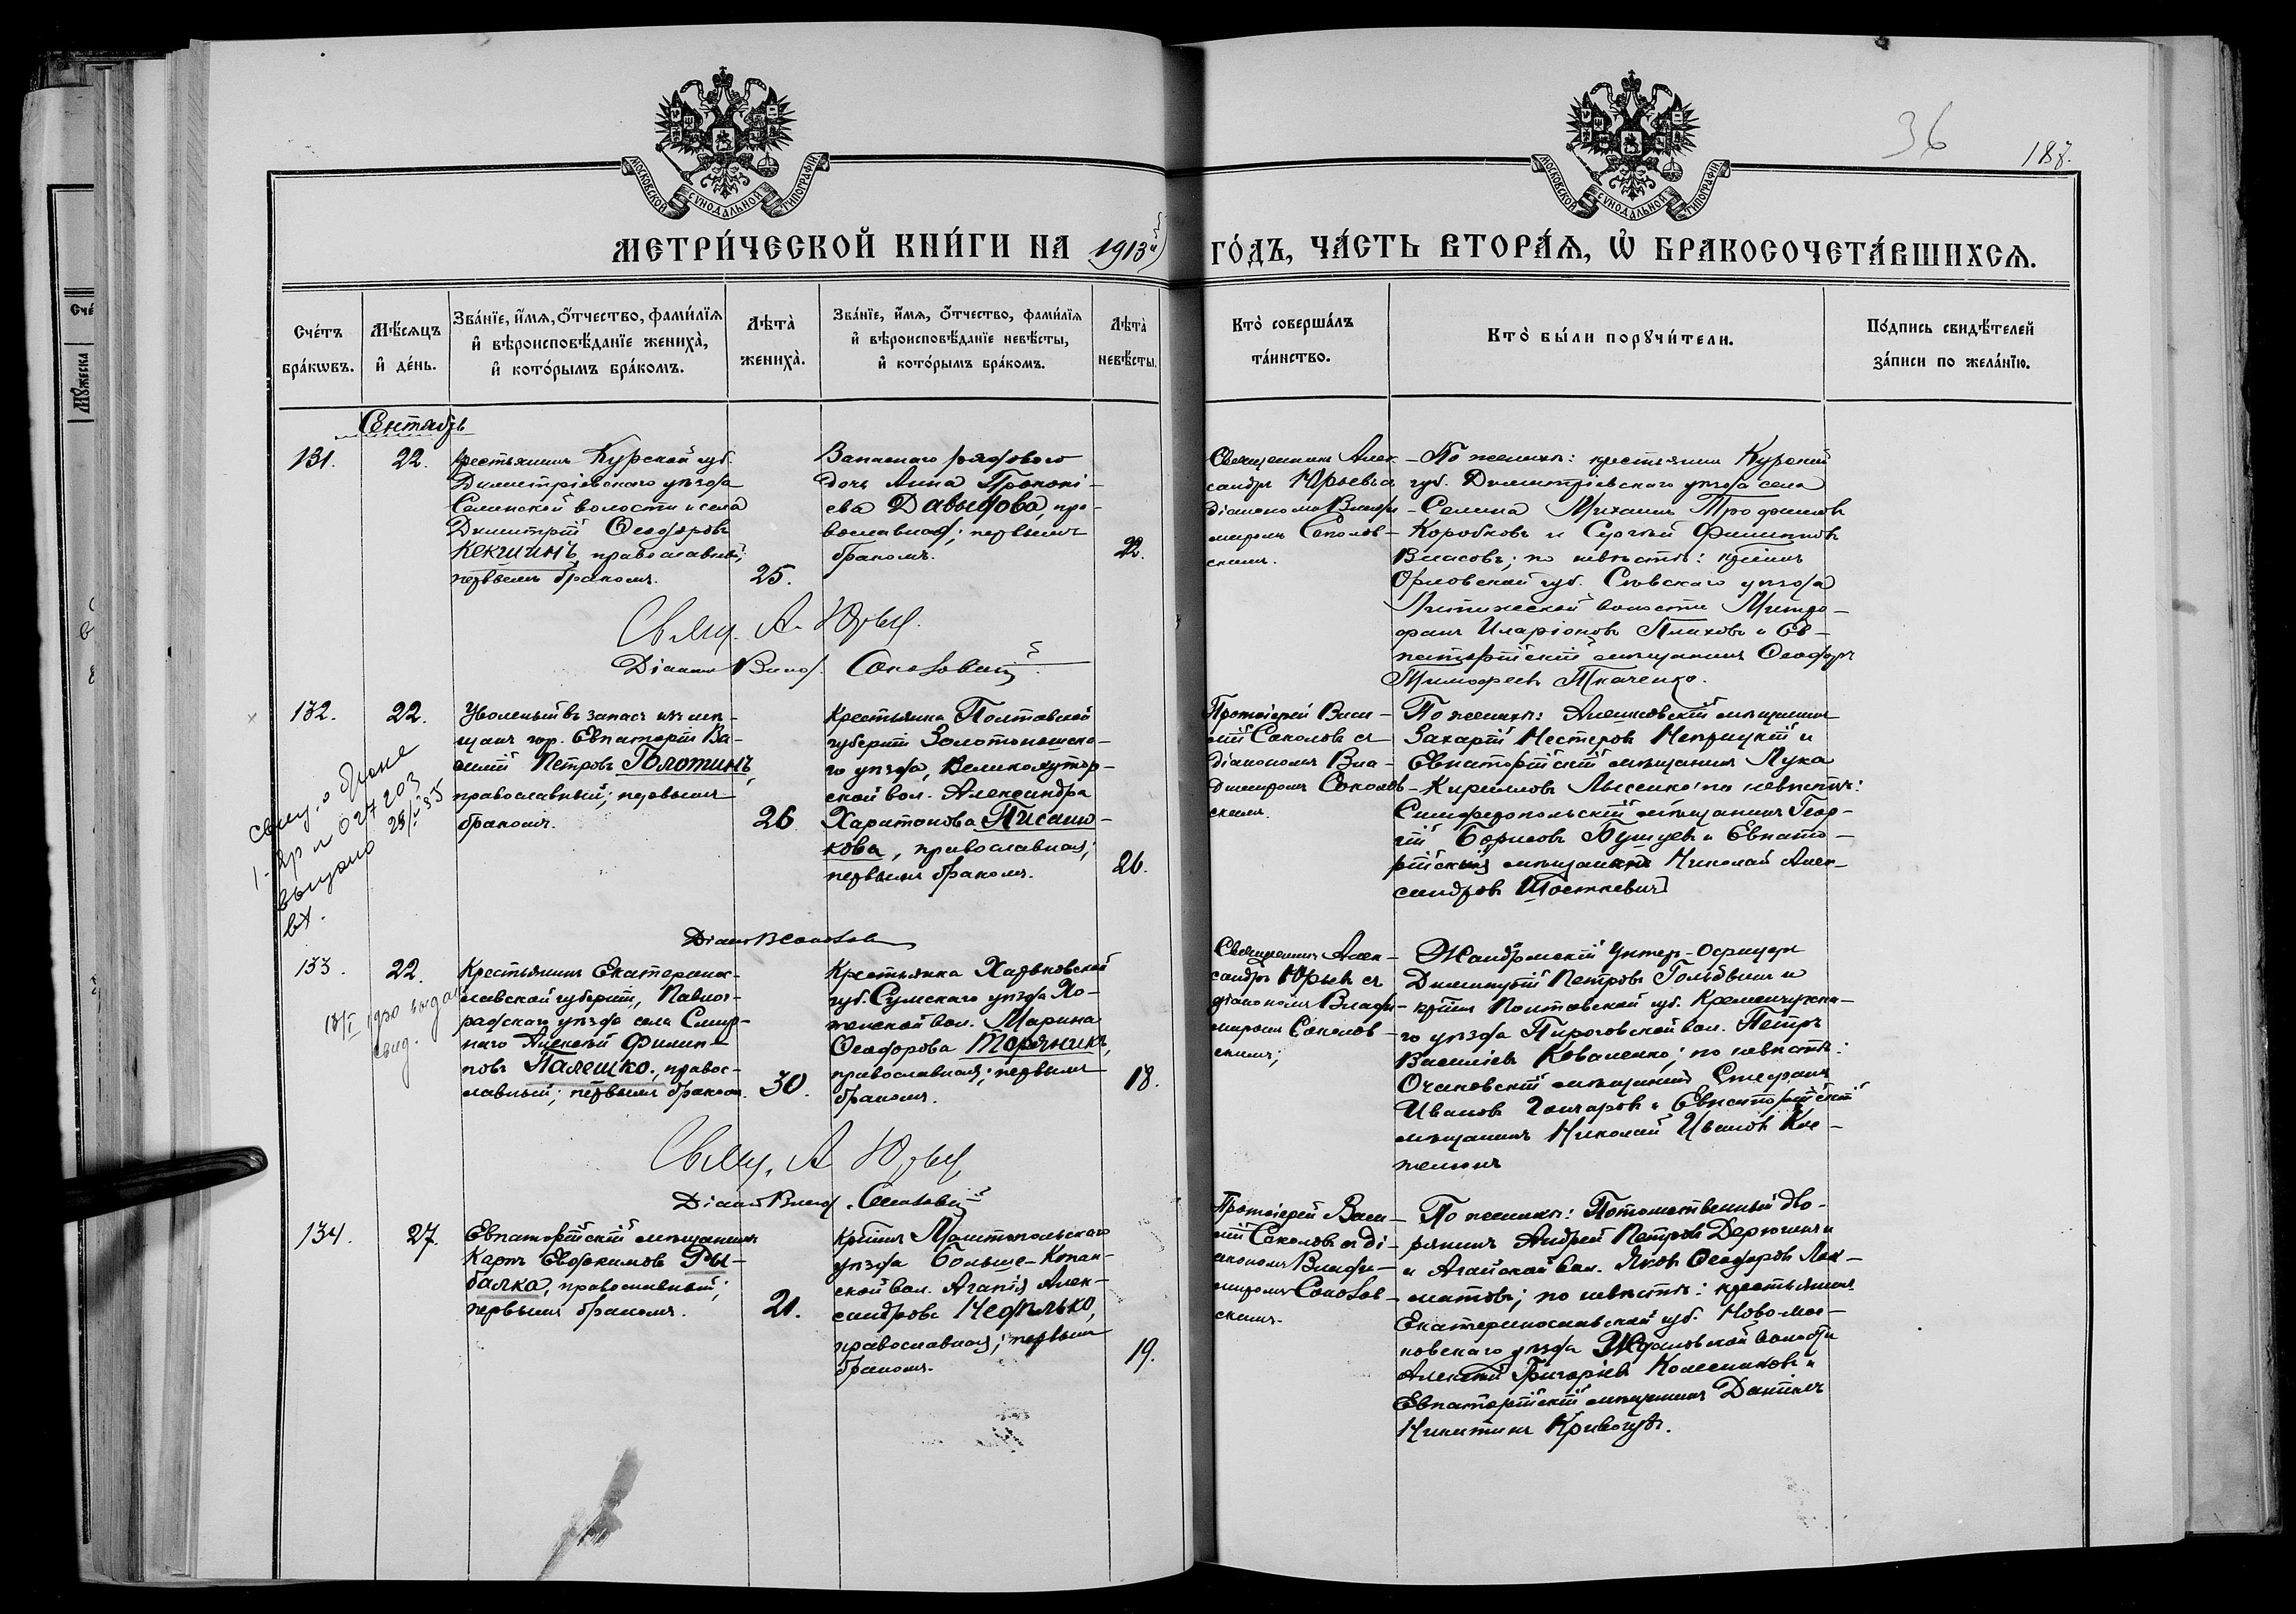 36
187.
МОСКОВСКОЙ СУНОДАЛЬНОЙ ТИПОГРАФІИ
МОСКОВСКОЙ СУНОДАЛЬНОЙ ТИПОГРАФІИ
МЕТРИ́ЧЕСКОЙ КНИ́ГИ НА 1913й
ГО́ДЪ, ЧА́СТЬ ВТОРА́Я, Ѡ҆ БРАКОСОЧЕТА́ВШИХСЯ.
Сче́тъ
бра́кѡвъ.
Мѣ́сяцъ
и҆ де́нь.
Зва́нїе, и҆́мя, ѻ҆́тчество, фами́лїя
и҆ вѣроисповѣ́данїе жениха̀,
и҆ кото́рымъ бра́комъ.
Лѣта̀
жениха̀.
Зва́нїе, и҆́мя, ѻ҆́тчество, фами́лїя
и҆ вѣроисповѣ́данїе невѣ́сты,
и҆ кото́рымъ бра́комъ.
Лѣта̀
невѣ́сты.
Кто̀ соверша́лъ
та́инство.
Кто̀ бы́ли порꙋчи́тели.
По́дпись свидѣ́телей
за́писи по жела́нїю.
Сентябрь
131.
22.
крестьянинъ Курской губ.
Димитріевскаго уѣзда
Селинской волости и села
Димитрій Ѳеодоровъ
Кекшинъ, православный;
первымъ бракомъ.
25.
Запаснаго рядового
дочь Анна Прокопі-
ева Давыдова, пра-
вославная; первымъ
бракомъ.
22.
Священникъ Алек-
сандръ Юрьевъ съ
діакономъ Влади-
міромъ Соколов-
скимъ.
По женихѣ: крестьянин Курской
губ. Димитріевскаго уѣзда села
Селина Михаилъ Трофимовъ
Коробковъ и Сергѣй Филиповъ
Власовъ; по невѣстѣ: кр-нинъ
Орловской губ. Сѣвскаго уѣзда
волости Митро-
фанъ Иларіоновъ и Ев-
паторійскій мѣщанинъ Ѳеодоръ
Тимофеевъ Ткаченко.
Свящ. А. Юрьевъ.
Діаконъ Влад. Соколовскій.
132.
22.
Уволеный въ запасъ изъ мѣ-
щанъ гор. Евпаторіи Ва-
силій Петровъ Болотинъ,
православный; первымъ
бракомъ.
26
Крестьянка Полтавской
губерніи Золотоношска-
го уѣзда, Великохутор-
ской вол. Александра
Харитонова Писаню-
кова, православная;
первымъ бракомъ.
26.
Протоіерей Васи-
лій Соколовъ съ
діакономъ Вла-
диміромъ Соколов-
скимъ.
По женихѣ: Алешковскій мѣщанинъ
Захарій Нестеровъ и
Евпаторійскій мѣщанинъ Лука
Кирилловъ Лысенко; по невѣстѣ:
Симферопольскій мѣщанинъ Геор-
гій Борисовъ и Евпато-
рійскій мѣщанинъ Николай Алек-
сандровъ Шосткевичъ
свид. о браке
1-яр № 027203
выдано 28/II 35
вх.
133.
22.
Крестьянинъ Екатеринос-
лавской губерніи, Павлог-
радскаго уѣзда села Смир-
наго Алексѣй Филип-
повъ Палешко, правос-
лавный; первымъ бракомъ.
30.
Крестьянка Харьковской
губ. Сумскаго уѣзда Хо-
тенской вол. Марина
Ѳеодорова Торяникъ,
православная; первымъ
бракомъ.
18.
Священникъ Алек-
сандръ Юрьевъ съ
діакономъ Влади-
міромъ Соколов-
скимъ;
Жандрмскій Унтер-Офицеръ
Димитрій Петровъ и
кр-нинъ Полтавской губ. Кременчугска-
го уѣзда Пироговской вол. Петръ
Василіевъ Коваленко; по невѣстѣ:
Очаковскій мѣщанинъ Стефанъ
Ивановъ Гончаровъ и Евпаторійскій
мѣщанинъ Николай Ивановъ
свид.
Свящ. А Юрьевъ
Діаконъ Влад. Соколовскій
134.
27.
Евпаторійскій мѣщанинъ
Карпъ Евдокимовъ Ры-
балка, православный;
первымъ бракомъ.
21.
Кр-нка Мелитопольскаго
уѣзда Больше-Копан-
ской вол. Агапія Алек-
сандрова Недѣлько,
православная; первымъ
бракомъ.
19.
Протоіерей Васи-
лій Соколовъ съ ді-
акономъ Влади-
міромъ Соколов-
скимъ.
По женихѣ: Потомственный дво-
рянинъ Андрей Петровъ Дерюгинъ
и Агайской вол. Яковъ Ѳеодоровъ
по невѣстѣ: крестьянинъ
Екатеринославской губ. Ново-мос-
ковскаго уѣзда Ждановской волости
Алексѣй Григорьевъ Колесниковъ и
Евпаторійскій мѣщанинъ Даніилъ
Никитинъ